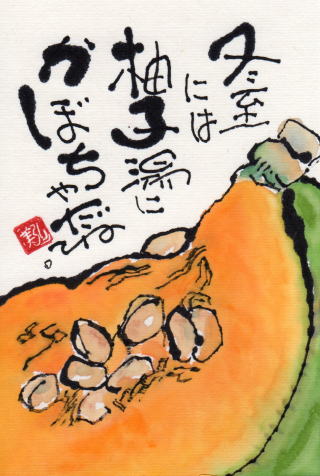 冬至
には
柚子湯に
かぼちゃだね。